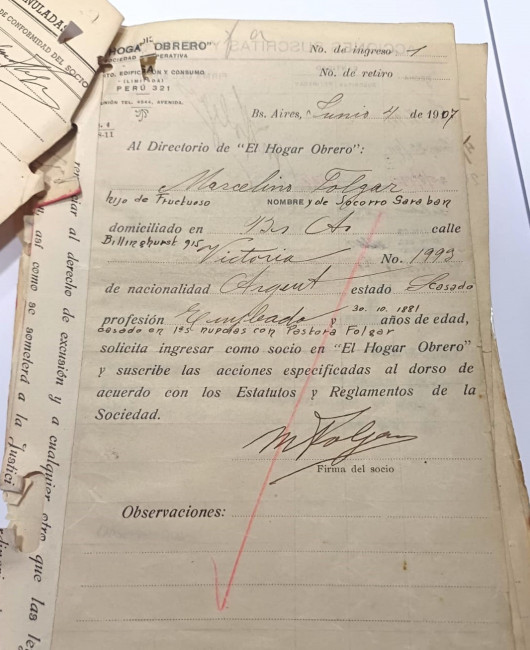 ANULADAS
DE CONFORMIDAD DEL SOCIO
HOGA "OBRERO"
SOCIEDAD COOPERATIVA
TO, EDIFICACIÓN Y CONSUMO
(LIMITADA)
PERÚ 321
UNIÓN TEL. AVENIDA.
No. de ingreso 1
No. de retiro
Bs. Aires, Junio 4 de 1907
Al Directorio de "El Hogar Obrero":
Marcelino Folgar
hijo de Fructuoso NOMBRE y de Socorro Sara ban
domiciliado en Bs As calle
Billinghurst 915
Victoria No. 1993
de nacionalidad Argent estado Casado
profesión Empleado y 30.10.1881 años de edad,
casado en 1as nupcias con Pastora Folgar
solicita ingresar como socio en "El Hogar Obrero"
y suscribe las acciones especificadas al dorso de
acuerdo con los Estatutos y Reglamentos de la
Sociedad.
M Folgar
Firma del socio
Observaciones:
al derecho de excusión y a cualquier otro que las le
así como se someterá a la Justici